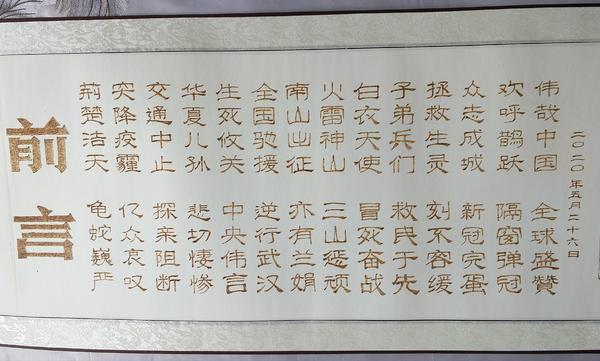 前言
荆楚洁天 龟蛇巍严
突降疫霾 亿众哀叹
交通中止 探亲阻断
华夏儿孙 悲切悽惨
生死攸关 中央伟言
全国驰援 逆行武汉
南山出征 亦有兰娟
火雷神山 三山惩顽
白衣天使 冒死奋战
子弟兵们 救民于先
拯救生灵 刻不容缓
众志成城 新冠完蛋
欢呼鹊跃 隔窗弹冠
伟哉中国 全球盛贊
二〇二〇年五月二十六日